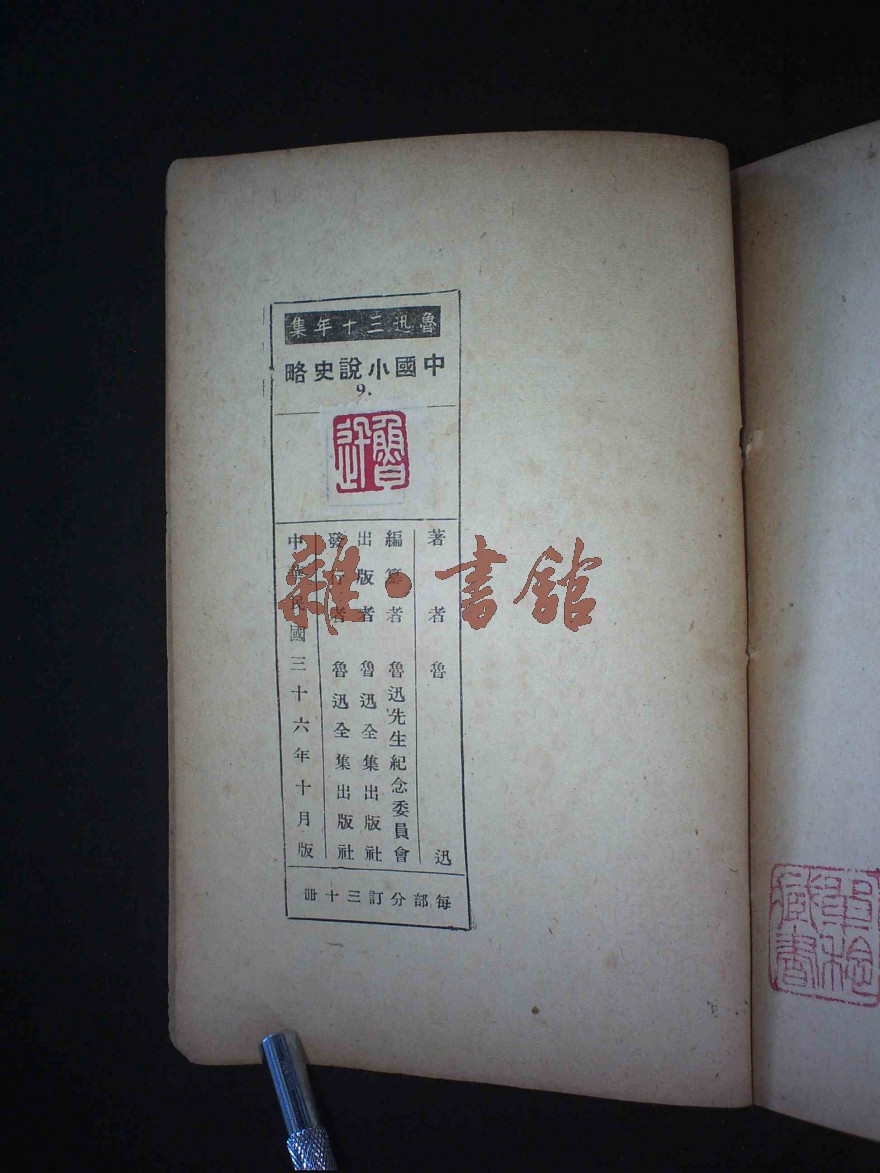 魯迅三十年集
中國小說史略
9.
魯迅
著者 魯迅
編纂者 魯迅先生紀念委員會
出版者 魯迅全集出版社
發行者 魯迅全集出版社
中華民國三十六年十月版
每部分訂三十冊
雜·書館
藏書